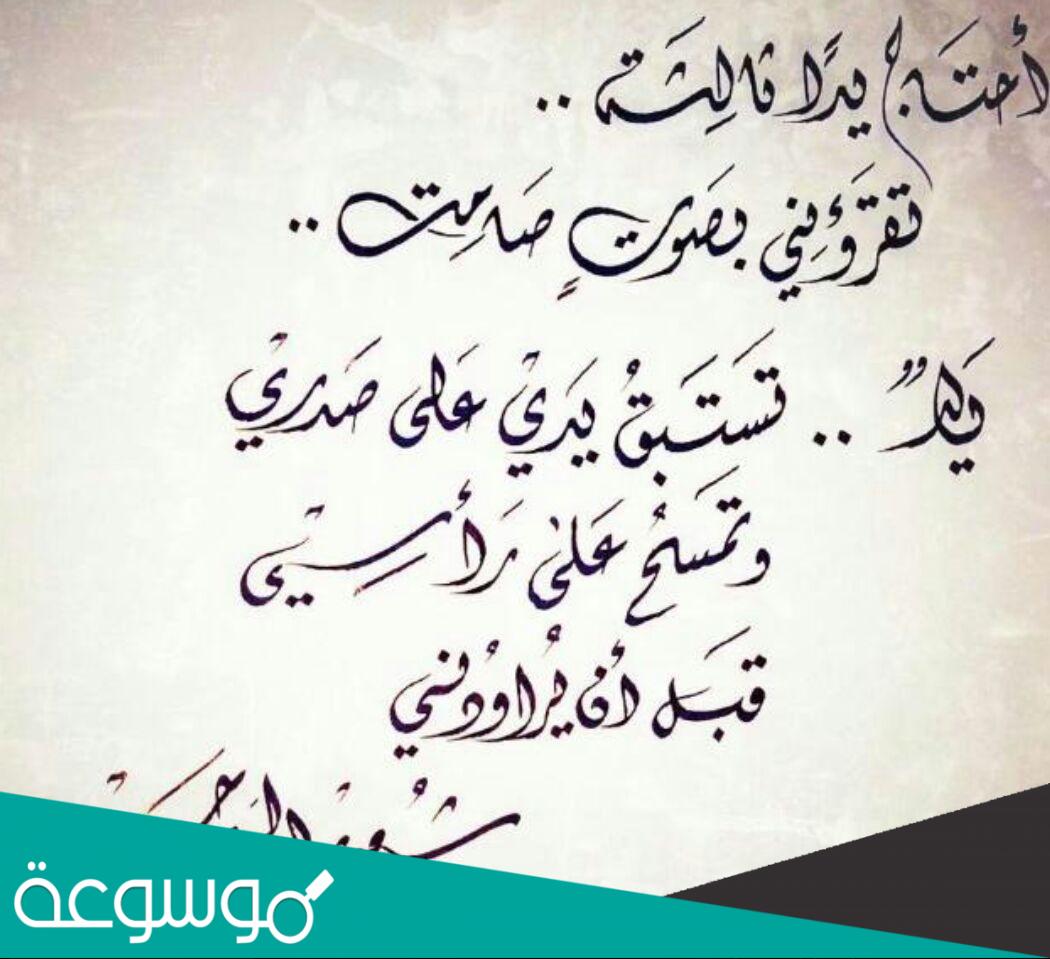 أحتَاج يدًا ثالِثَة ..
تقرَؤُنِني بصَوتٍ صَامِت ..
يَدٌ .. تَستَبقُ يَديْ عَلى صَدريْ
وتمسَحُ عَلىٰ رَأسِيْ
قبَل أن يُراوُدنيْ
شُعورْ
موسوعة